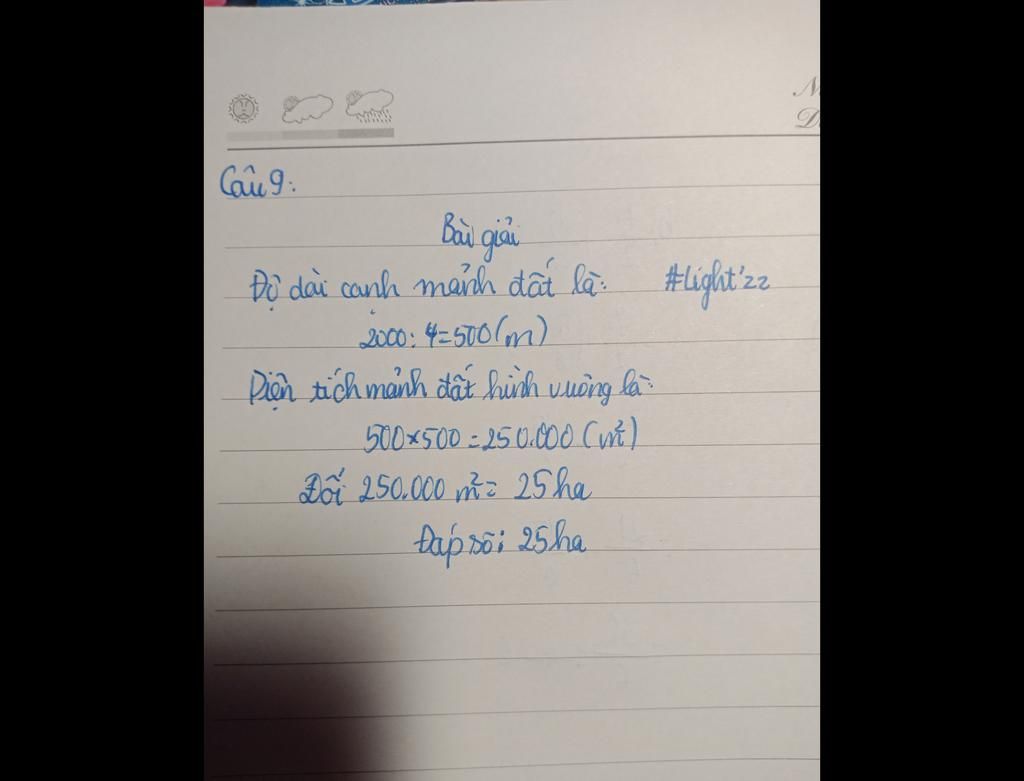 Câu 9:
Bài giải
Độ dài cạnh mảnh đất là: #Light'zz
2000 : 4 = 500 (m)
Diện tích mảnh đất hình vuông là:
500 × 500 = 250.000 (m²)
Đổi 250.000 m² = 25 ha
Đáp số: 25 ha